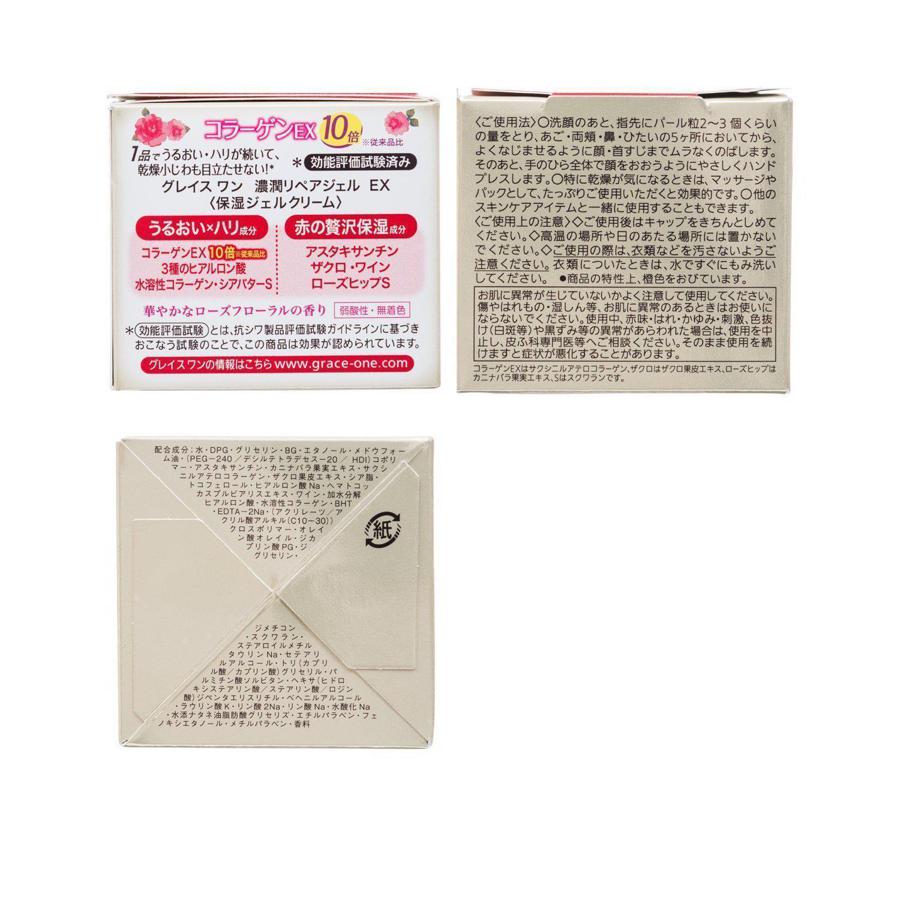 コラーゲンEX 10倍 ※従来品比
1品でうるおい・ハリが続いて、
乾燥小じわも目立たせない!*
*効能評価試験済み
グレイス ワン 濃潤リペアジェル EX
〈保湿ジェルクリーム〉
うるおい×ハリ成分
コラーゲンEX10倍※従来品比
3種のヒアルロン酸
水溶性コラーゲン・シアバターS
赤の贅沢保湿成分
アスタキサンチン
ザクロ・ワイン
ローズヒップS
華やかなローズフローラルの香り 弱酸性・無着色
*効能評価試験とは、抗シワ製品評価試験ガイドラインに基づき
おこなう試験のことで、この商品は効果が認められています。
グレイスワンの情報はこちら www.grace-one.com
〈ご使用法〉〇洗顔のあと、指先にパール粒2〜3個くらい
の量をとり、あご・両頬・鼻・ひたいの5ヶ所においてから、
よくなじませるように顔・首すじまでムラなくのばします。
そのあと、手のひら全体で顔をおおうようにやさしくハンド
プレスします。〇特に乾燥が気になるときは、マッサージや
パックとして、たっぷりご使用いただくと効果的です。〇他の
スキンケアアイテムと一緒に使用することもできます。
〈ご使用上の注意〉◇ご使用後はキャップをきちんとしめて
ください。◇高温の場所や日のあたる場所には置かない
でください。◇ご使用の際は、衣類などを汚さないようご
注意ください。衣類についたときは、水ですぐにもみ洗い
してください。 ●商品の特性上、橙色をおびています。
お肌に異常が生じていないかよく注意して使用してください。
傷やはれもの・湿しん等、お肌に異常のあるときはお使いに
ならないでください。使用中、赤味・はれ・かゆみ・刺激、色抜
け(白斑等)や黒ずみ等の異常があらわれた場合は、使用を中
止し、皮ふ科専門医等へご相談ください。そのまま使用を続
けますと症状が悪化することがあります。
コラーゲンEXはサクシニルアテロコラーゲン、ザクロはザクロ果皮エキス、ローズヒップは
カニナバラ果実エキス、Sはスクワランです。
配合成分;水・DPG・グリセリン・BG・エタノール・メドウフォー
ム油・(PEG-240/デシルテトラデセス-20/HDI)コポリ
マー・アスタキサンチン・カニナバラ果実エキス・サクシ
ニルアテロコラーゲン・ザクロ果皮エキス・シア脂・
トコフェロール・ヒアルロン酸Na・ヘマトコッ
カスプルビアリスエキス・ワイン・加水分解
ヒアルロン酸・水溶性コラーゲン・BHT
・EDTA-2Na・(アクリレーツ/ア
クリル酸アルキル(C10-30))
クロスポリマー・オレイ
ン酸オレイル・ジカ
プリン酸PG・ジ
グリセリン・
紙
ジメチコン
・スクワラン・
ステアロイルメチル
タウリンNa・セテアリ
ルアルコール・トリ(カプリ
ル酸/カプリン酸)グリセリル・パ
ルミチン酸ソルビタン・ヘキサ(ヒドロ
キシステアリン酸/ステアリン酸/ロジン
酸)ジペンタエリスリチル・ベヘニルアルコール
・ラウリン酸K・リン酸2Na・リン酸Na・水酸化Na
・水添ナタネ油脂肪酸グリセリズ・エチルパラベン・フェ
ノキシエタノール・メチルパラベン・香料